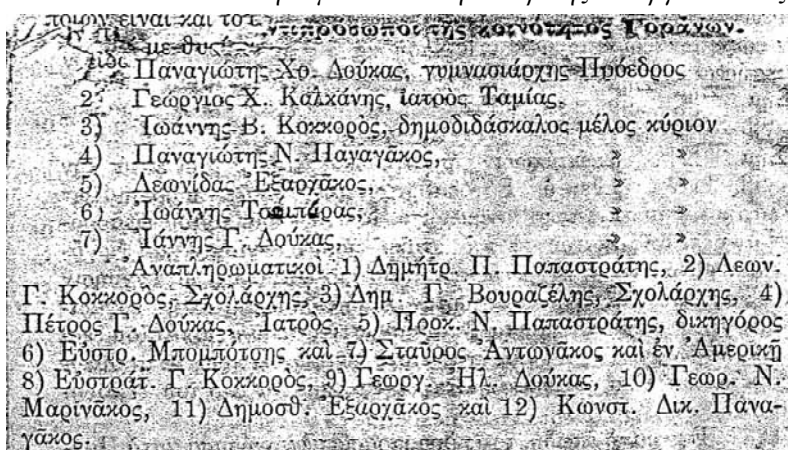 ποιων εἶναι καὶ το
ντιπρόσωποι τῆς κοινότητος Γοράνων.
με θυ
Παναγιώτης Χρ. Δούκας, γυμνασιάρχης Πρόεδρος
2 Γεώργιος Χ. Καλκάνης, ἰατρὸς Ταμίας.
3) Ἰωάννης Β. Κοκκορὸς, δημοδιδάσκαλος μέλος κύριον
4) Παναγιώτης Ν. Παναγάκος, » »
5) Λεωνίδας Ἐξαρχᾶκος, » »
6) Ἰωάννης Τσιμπάρας, » »
7) Ἰάννης Γ. Δούκας, » »
Ἀναπληρωματικοὶ 1) Δημήτρ. Π. Παπαστράτης, 2) Λεων.
Γ. Κοκκορὸς, Σχολάρχης, 3) Δημ. Γ. Βουραζέλης, Σχολάρχης, 4)
Πέτρος Γ. Δούκας, Ἰατρὸς, 5) Προκ. Ν. Παπαστράτης, δικηγόρος
6) Εὐστρ. Μπομπότσης καὶ 7) Σταῦρος Ἀντωνᾶκος καὶ ἐν Ἀμερικῇ
8) Εὐστράτ. Γ. Κοκκορὸς, 9) Γεωργ. Ἠλ. Δούκας, 10) Γεωρ. Ν.
Μαρινᾶκος, 11) Δημοσθ. Ἐξαρχᾶκος καὶ 12) Κωνστ. Δικ. Πανα-
γᾶκος.